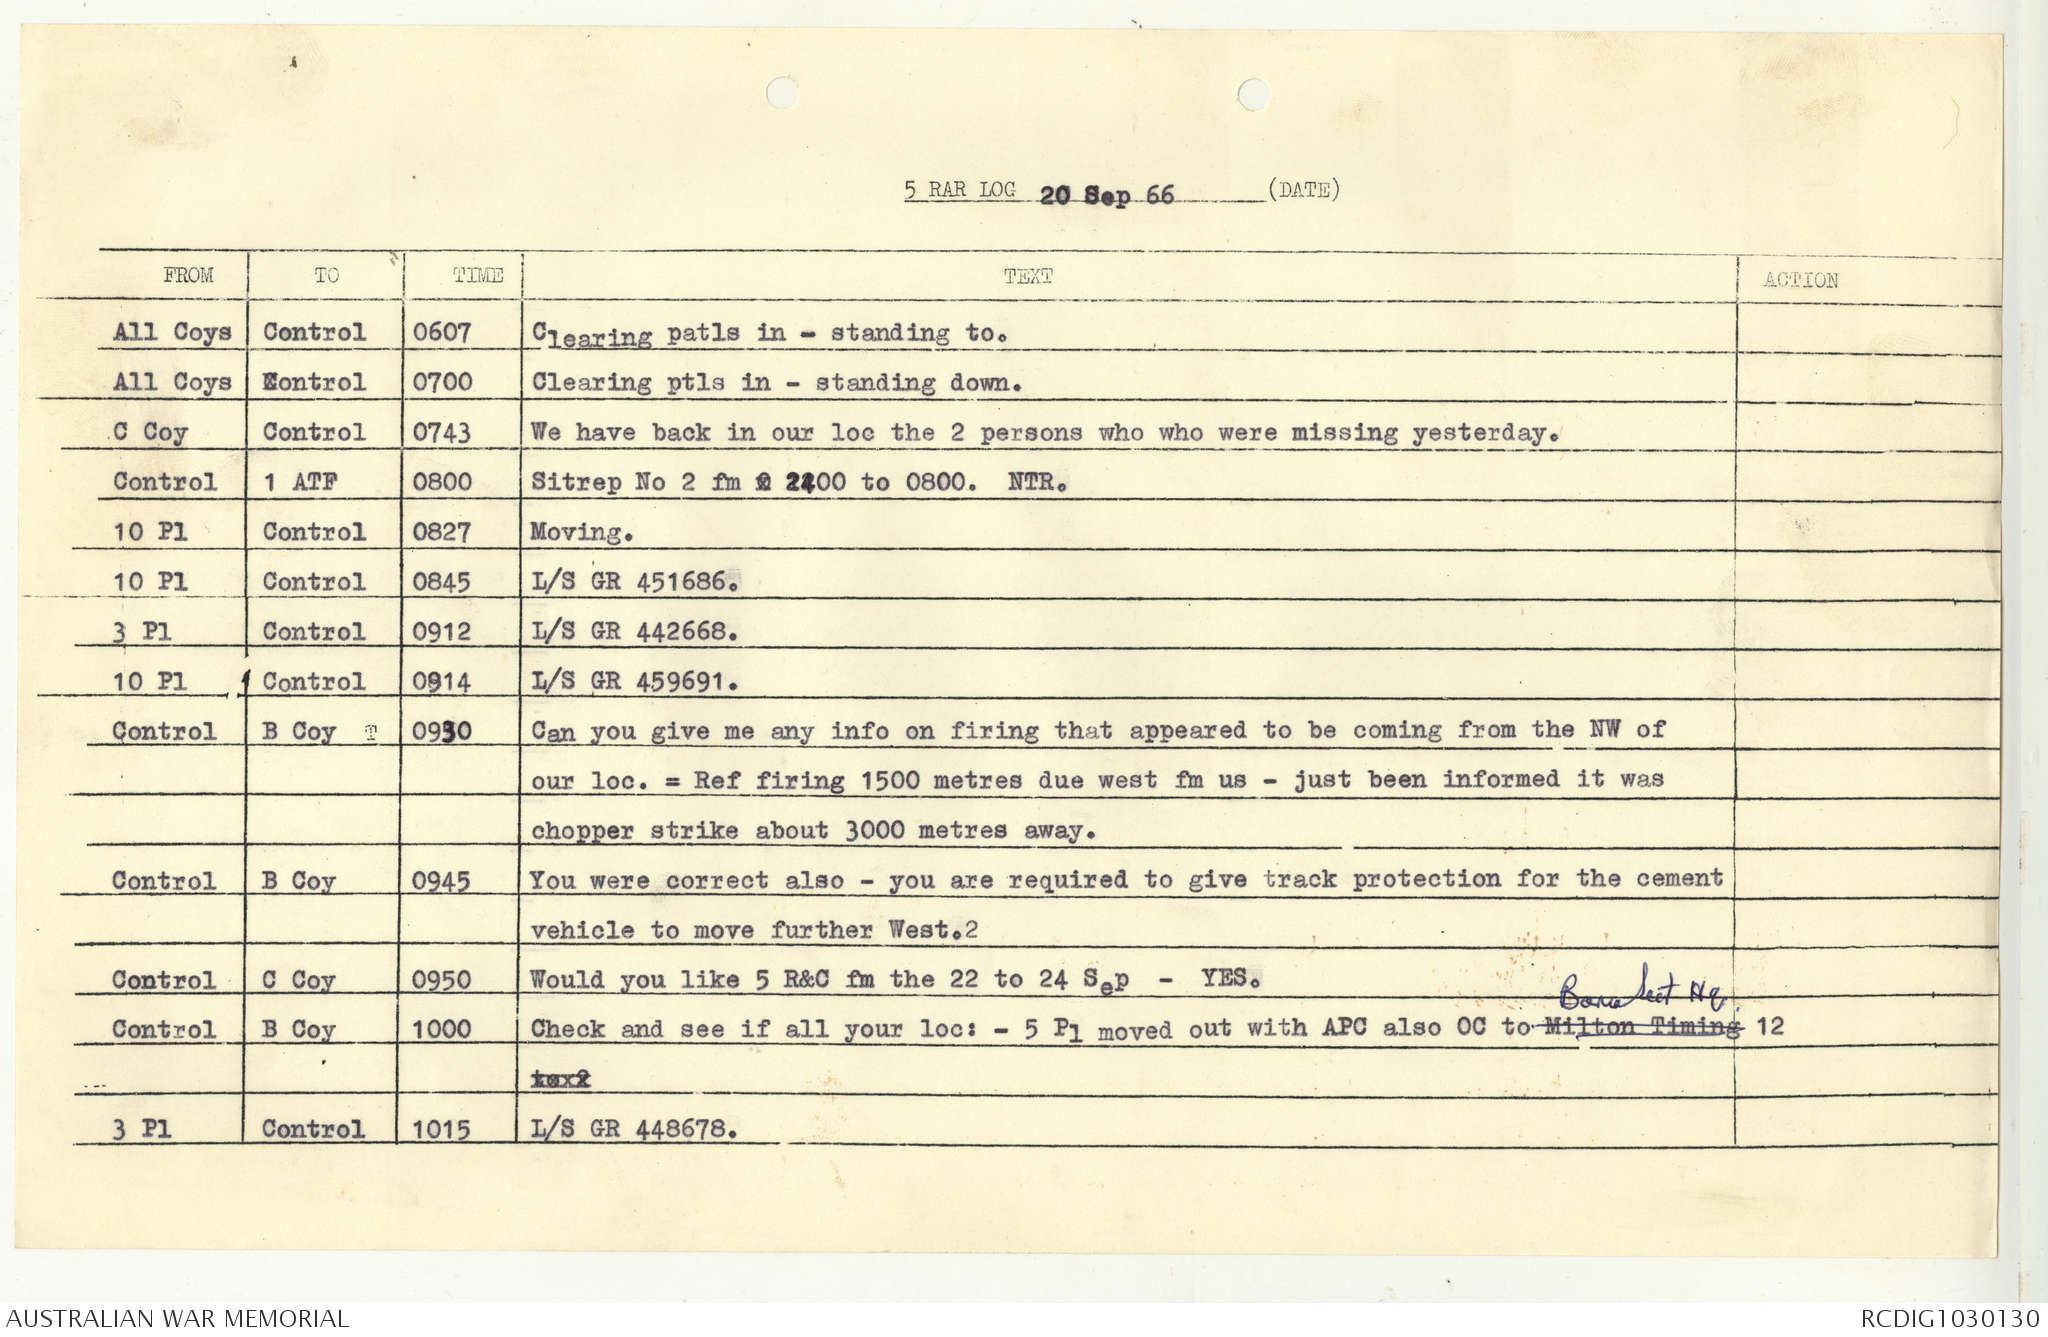 5 RAR LOG 20 Sep 66 (DATE)
FROM TO TIME TEXT ACTION
All Coys Control 0607 Clearing patls in - standing to.
All Coys Control 0700 Clearing ptls in - standing down.
C Coy Control 0743 We have back in our loc the 2 persons who who were missing yesterday.
Control 1 ATF 0800 Sitrep No 2 fm 2400 to 0800. NTR.
10 Pl Control 0827 Moving.
10 Pl Control 0845 L/S GR 451686.
3 Pl Control 0912 L/S GR 442668.
10 Pl Control 0914 L/S GR 459691.
Control B Coy T 0930 Can you give me any info on firing that appeared to be coming from the NW of
our loc. = Ref firing 1500 metres due west fm us - just been informed it was
chopper strike about 3000 metres away.
Control B Coy 0945 You were correct also - you are required to give track protection for the cement
vehicle to move further West.2
Control C Coy 0950 Would you like 5 R&C fm the 22 to 24 Sep - YES.
Sect Hq
Control B Coy 1000 Check and see if all your loc: - 5 Pl moved out with APC also OC to Milton Timing 12
3 Pl Control 1015 L/S GR 448678.
AUSTRALIAN WAR MEMORIAL RCDIG1030130